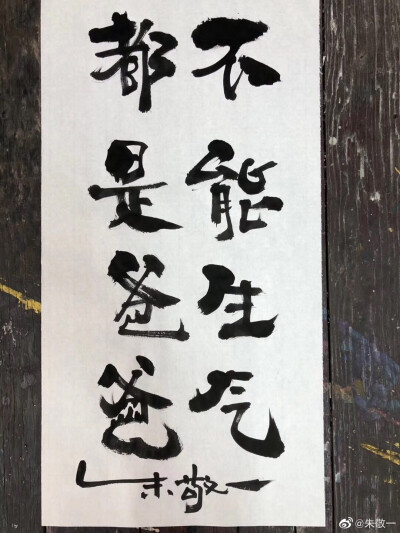 不能生气
都是爸爸
朱敬一
@朱敬一